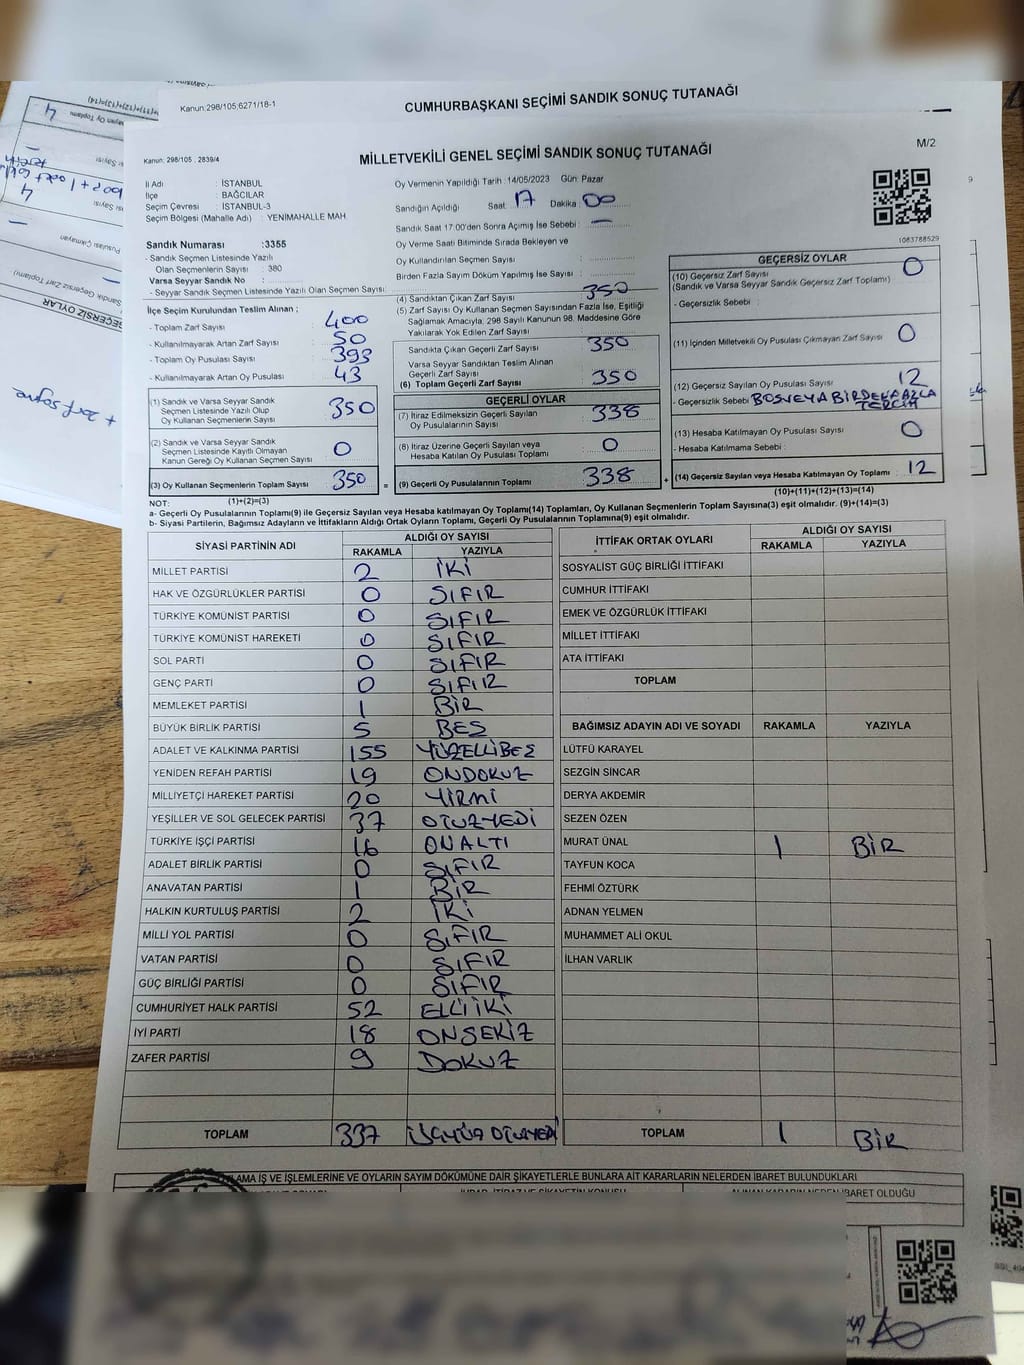 Kanun:298/105;6271/18-1
CUMHURBAŞKANI SEÇİMİ SANDIK SONUÇ TUTANAĞI
Kanun: 298/105 , 2839/4
MİLLETVEKİLİ GENEL SEÇİMİ SANDIK SONUÇ TUTANAĞI
M/2
İl Adı : İSTANBUL
İlçe : BAĞCILAR
Seçim Çevresi : İSTANBUL-3
Seçim Bölgesi (Mahalle Adı) : YENİMAHALLE MAH.
Sandık Numarası :3355
- Sandık Seçmen Listesinde Yazılı
Olan Seçmenlerin Sayısı : 380
Varsa Seyyar Sandık No :
- Seyyar Sandık Seçmen Listesinde Yazılı Olan Seçmen Sayısı:
Oy Vermenin Yapıldığı Tarih :14/05/2023 Gün: Pazar
Sandığın Açıldığı Saat 17 Dakika 00
Sandık Saat 17.00'den Sonra Açımış İse Sebebi : —
Oy Verme Saati Bitiminde Sırada Bekleyen ve
Oy Kullandırılan Seçmen Sayısı :
Birden Fazla Sayım Döküm Yapılmış İse Sayısı :
1083788529
İlçe Seçim Kurulundan Teslim Alınan ;
- Toplam Zarf Sayısı : 400
- Kullanılmayarak Artan Zarf Sayısı : 50
- Toplam Oy Pusulası Sayısı : 393
- Kullanılmayarak Artan Oy Pusulası : 43
(1) Sandık ve Varsa Seyyar Sandık
Seçmen Listesinde Yazılı Olup
Oy Kullanan Seçmenlerin Sayısı 350
(2) Sandık ve Varsa Seyyar Sandık
Seçmen Listesinde Kayıtlı Olmayan
Kanun Gereği Oy Kullanan Seçmen Sayısı 0
(3) Oy Kullanan Seçmenlerin Toplam Sayısı 350
(1)+(2)=(3)
(4) Sandıktan Çıkan Zarf Sayısı 350
(5) Zarf Sayısı Oy Kullanan Seçmen Sayısından Fazla İse, Eşitliği
Sağlamak Amacıyla, 298 Sayılı Kanunun 98. Maddesine Göre
Yakılarak Yok Edilen Zarf Sayısı
Sandıkta Çıkan Geçerli Zarf Sayısı 350
Varsa Seyyar Sandıktan Teslim Alınan
Geçerli Zarf Sayısı
(6) Toplam Geçerli Zarf Sayısı 350
GEÇERLİ OYLAR
(7) İtiraz Edilmeksizin Geçerli Sayılan
Oy Pusulalarının Sayısı 338
(8) İtiraz Üzerine Geçerli Sayılan veya
Hesaba Katılan Oy Pusulası Toplamı 0
= (9) Geçerli Oy Pusulalarının Toplamı 338 +
GEÇERSİZ OYLAR
(10) Geçersiz Zarf Sayısı 0
(Sandık ve Varsa Seyyar Sandık Geçersiz Zarf Toplamı)
- Geçersizlik Sebebi :
(11) İçinden Milletvekili Oy Pusulası Çıkmayan Zarf Sayısı 0
(12) Geçersiz Sayılan Oy Pusulası Sayısı 12
- Geçersizlik Sebebi BOŞ VEYA BİRDEN FAZLA
TERCİH
(13) Hesaba Katılmayan Oy Pusulası Sayısı 0
- Hesaba Katılmama Sebebi :
(14) Geçersiz Sayılan veya Hesaba Katılmayan Oy Toplamı 12
(10)+(11)+(12)+(13)=(14)
NOT:
a- Geçerli Oy Pusulalarının Toplamı(9) ile Geçersiz Sayılan veya Hesaba katılmayan Oy Toplamı(14) Toplamları, Oy Kullanan Seçmenlerin Toplam Sayısına(3) eşit olmalıdır. (9)+(14)=(3)
b- Siyasi Partilerin, Bağımsız Adayların ve İttifakların Aldığı Ortak Oyların Toplamı, Geçerli Oy Pusulalarının Toplamına(9) eşit olmalıdır.
SİYASİ PARTİNİN ADI ALDIĞI OY SAYISI
RAKAMLA YAZIYLA
MİLLET PARTİSİ 2 İKİ
HAK VE ÖZGÜRLÜKLER PARTİSİ 0 SIFIR
TÜRKİYE KOMÜNİST PARTİSİ 0 SIFIR
TÜRKİYE KOMÜNİST HAREKETİ 0 SIFIR
SOL PARTİ 0 SIFIR
GENÇ PARTİ 0 SIFIR
MEMLEKET PARTİSİ 1 BİR
BÜYÜK BİRLİK PARTİSİ 5 BEŞ
ADALET VE KALKINMA PARTİSİ 155 YÜZELLİBEŞ
YENİDEN REFAH PARTİSİ 19 ONDOKUZ
MİLLİYETÇİ HAREKET PARTİSİ 20 YİRMİ
YEŞİLLER VE SOL GELECEK PARTİSİ 37 OTUZYEDİ
TÜRKİYE İŞÇİ PARTİSİ 16 ONALTI
ADALET BİRLİK PARTİSİ 0 SIFIR
ANAVATAN PARTİSİ 1 BİR
HALKIN KURTULUŞ PARTİSİ 2 İKİ
MİLLİ YOL PARTİSİ 0 SIFIR
VATAN PARTİSİ 0 SIFIR
GÜÇ BİRLİĞİ PARTİSİ 0 SIFIR
CUMHURİYET HALK PARTİSİ 52 ELLİİKİ
İYİ PARTİ 18 ONSEKİZ
ZAFER PARTİSİ 9 DOKUZ
TOPLAM 337 ÜÇYÜZ OTUZYEDİ
İTTİFAK ORTAK OYLARI ALDIĞI OY SAYISI
RAKAMLA YAZIYLA
SOSYALİST GÜÇ BİRLİĞİ İTTİFAKI
CUMHUR İTTİFAKI
EMEK VE ÖZGÜRLÜK İTTİFAKI
MİLLET İTTİFAKI
ATA İTTİFAKI
TOPLAM
BAĞIMSIZ ADAYIN ADI VE SOYADI RAKAMLA YAZIYLA
LÜTFÜ KARAYEL
SEZGİN SİNCAR
DERYA AKDEMİR
SEZEN ÖZEN
MURAT ÜNAL 1 BİR
TAYFUN KOCA
FEHMİ ÖZTÜRK
ADNAN YELMEN
MUHAMMET ALİ OKUL
İLHAN VARLIK
TOPLAM 1 BİR
LAMA İŞ VE İŞLEMLERİNE VE OYLARIN SAYIM DÖKÜMÜNE DAİR ŞİKAYETLERLE BUNLARA AİT KARARLARIN NELERDEN İBARET BULUNDUKLARI